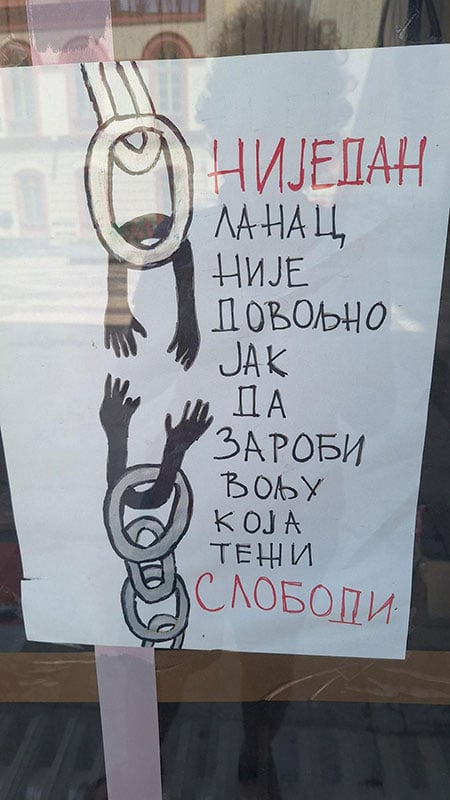 НИЈЕДАН
ЛАНАЦ
НИЈЕ
ДОВОЉНО
ЈАК
ДА
ЗАРОБИ
ВОЉУ
КОЈА
ТЕЖИ
СЛОБОДИ